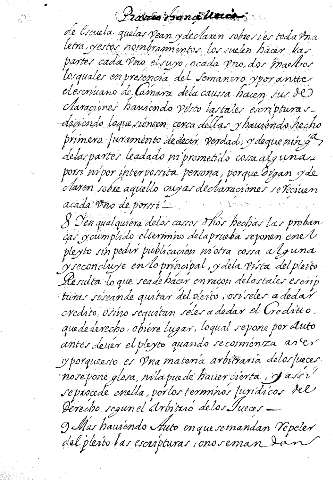 de Escuela, quelas vean y declaren sobresies toda Una
letra, y estos nombramientos, los suelen hacer las
partes cada Uno el suyo, ô cada Uno, dos Maestros
los quales en presencia del Semanero, y por ante
el escrivano de Camara dela caussa hacen sus De
claraciones haviendo Visto las tales escripturas
diciendo loque sienten cerca dellas y haviendo hecho
primero juramento de decir verdad, y de que ning.ª
delas partes leadado ni prometido cosa alguna
porsi ni por interposita persona, porque digan y de
claren sobre aquello cuyas declaraciones se reciven
acada Uno de porsi.
8 Y en qualquiera delos casos dhos hechas las proban
ças y cumplido el termino dela prueba se ponen en el
pleyto sin pedir publicacion ni otra cossa alguna
y se concluye en lo principal, y dela vista del pleito
Resulta lo que se a de hacer en raçon delos tales escrip
turas si se ande quitar del pleito, o si seles a de dar
credito, o si no se quitan seles a de dar el Credito
que de derecho, obiere lugar, loqual se pone por Auto
antes de ver el pleyto quando se comiença a ver
y porque esto es Una materia arbitraria delos jueces
no se pone glosa, ni la puede haver cierta, y assi
se procede en ella, por los terminos juridicos del
Derecho segun el Arbitrio delos Jueces
9 Mas haviendo Auto en que se mandan Repeler
del pleito las escripturas, o no se mandan